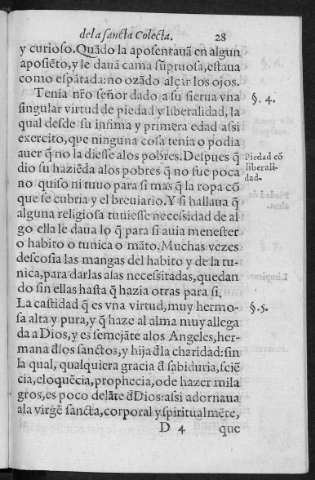 de la sancta Colecta. 28
y curioso. Quãdo la aposentauã en algun
aposiẽto, y le dauã cama sũptuosa, estaua
como espãtada: no ozãdo alçar los ojos.
Tenia nr̃o señor dado a su sierua vna §. 4.
singular virtud de piedad y liberalidad, la
qual desde su infima y primera edad assi
exercito, que ninguna cosa tenia o podia
auer q̃ no la diesse alos pobres. Despues q̃ Piedad cõ
dio su haziẽda alos pobres q̃ no fue poca liberali-
no quiso ni tuuo para si mas q̃ la ropa cõ dad.
que se cubria y el breuiario. Y si hallaua q̃
alguna religiosa tuuiesse necessidad de al
go ella le daua lo q̃ para si auia menester
o habito o tunica o mãto. Muchas vezes
descosia las mangas del habito y de la tu-
nica, para darlas alas necessitadas, quedan
do sin ellas hasta q̃ hazia otras para si.
La castidad q̃ es vna virtud, muy hermo- §. 5.
sa alta y pura, y q̃ haze al alma muy allega
da a Dios, y es semejãte alos Angeles, her-
mana d̃los sanctos, y hija d̃la charidad: sin
la qual, qualquiera gracia d̃ sabiduria, sciẽ
cia, eloquẽcia, prophecia, o de hazer mila
gros, es poco delãte d̃ Dios: assi adornaua
ala virgẽ sancta, corporal y spiritualmẽte,
D 4 que